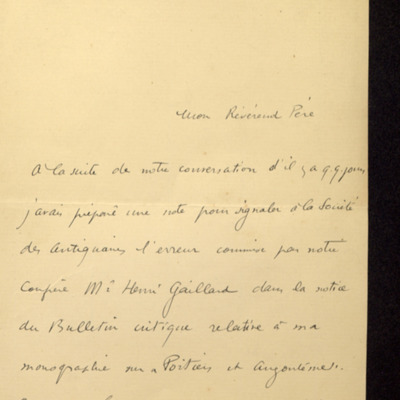 Mon Révérend Père
A la suite de notre conversation d'il y a qq jours
j'avais préparé une note pour signaler à la Société
des Antiquaires l'erreur commise par notre
Confrère Mr Henri Gaillard dans la notice
du Bulletin critique relative à ma
monographie sur Poitiers et Angoulême.